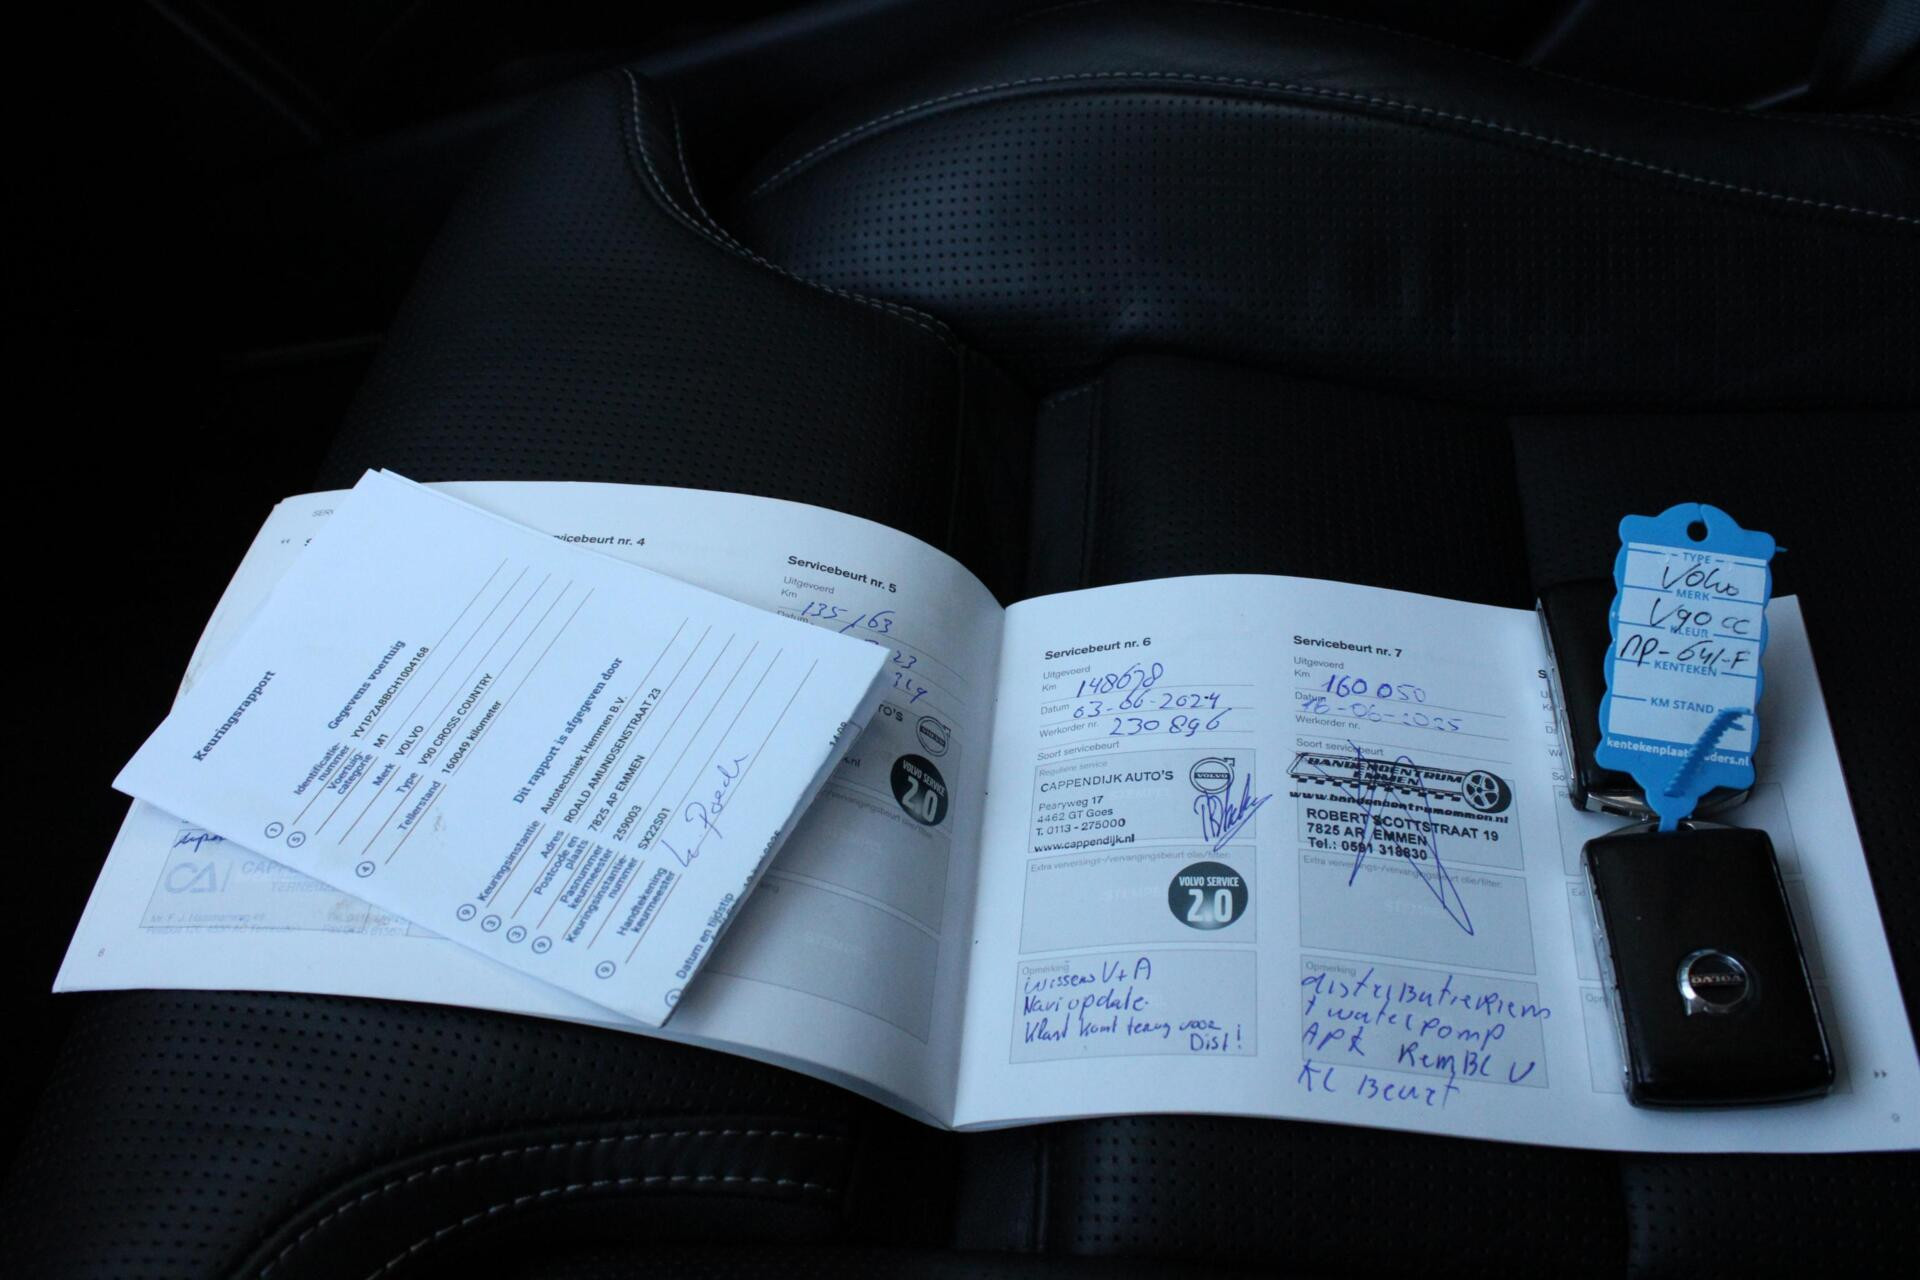 Keuringsrapport
Gegevens voertuig
1 Identificatie-
nummer YV1PZA8BCH1004168
5 Voertuig-
categorie M1
Merk VOLVO
Type V90 CROSS COUNTRY
4 Tellerstand 160049 kilometer
Dit rapport is afgegeven door
9 Keuringsinstantie Autotechniek Hemmen B.V.
3 Adres ROALD AMUNDSENSTRAAT 23
3 Postcode en
plaats 7825 AP EMMEN
9 Pasnummer
keurmeester 259003
Keuringsinstantie-
nummer SX22S01
9 Handtekening
keurmeester
Datum en tijdstip
CA
TERNEUZEN
8
Servicebeurt nr. 4
Servicebeurt nr. 5
Uitgevoerd
Km 135163
Datum
23
319
VOLVO SERVICE
2.0
Servicebeurt nr. 6
Uitgevoerd
Km 148678
Datum 03-06-2024
Werkorder nr. 230896
Soort servicebeurt
Reguliere service
CAPPENDIJK AUTO'S
VOLVO
Pearyweg 17
4462 GT Goes
T. 0113 - 275000
www.cappendijk.nl
Extra verversings-/vervangingsbeurt olie/filter:
VOLVO SERVICE
2.0
Opmerking
wissers V+A
Navi update.
Klant komt terug voor
Dist!
Servicebeurt nr. 7
Uitgevoerd
Km 160 050
Datum 16-06-2025
Werkorder nr.
Soort servicebeurt
BANDENCENTRUM
EMMEN
www.bandencentrumemmen.nl
ROBERT SCOTTSTRAAT 19
7825 AR EMMEN
Tel.: 0591 318630
Extra verversings-/vervangingsbeurt olie/filter:
Opmerking
distributieriem
+ waterpomp
APK RemBL V
KL Beurt
9
TYPE
Volvo
MERK
V90 CC
KLEUR
NP-641-F
KENTEKEN
KM STAND
VOLVO